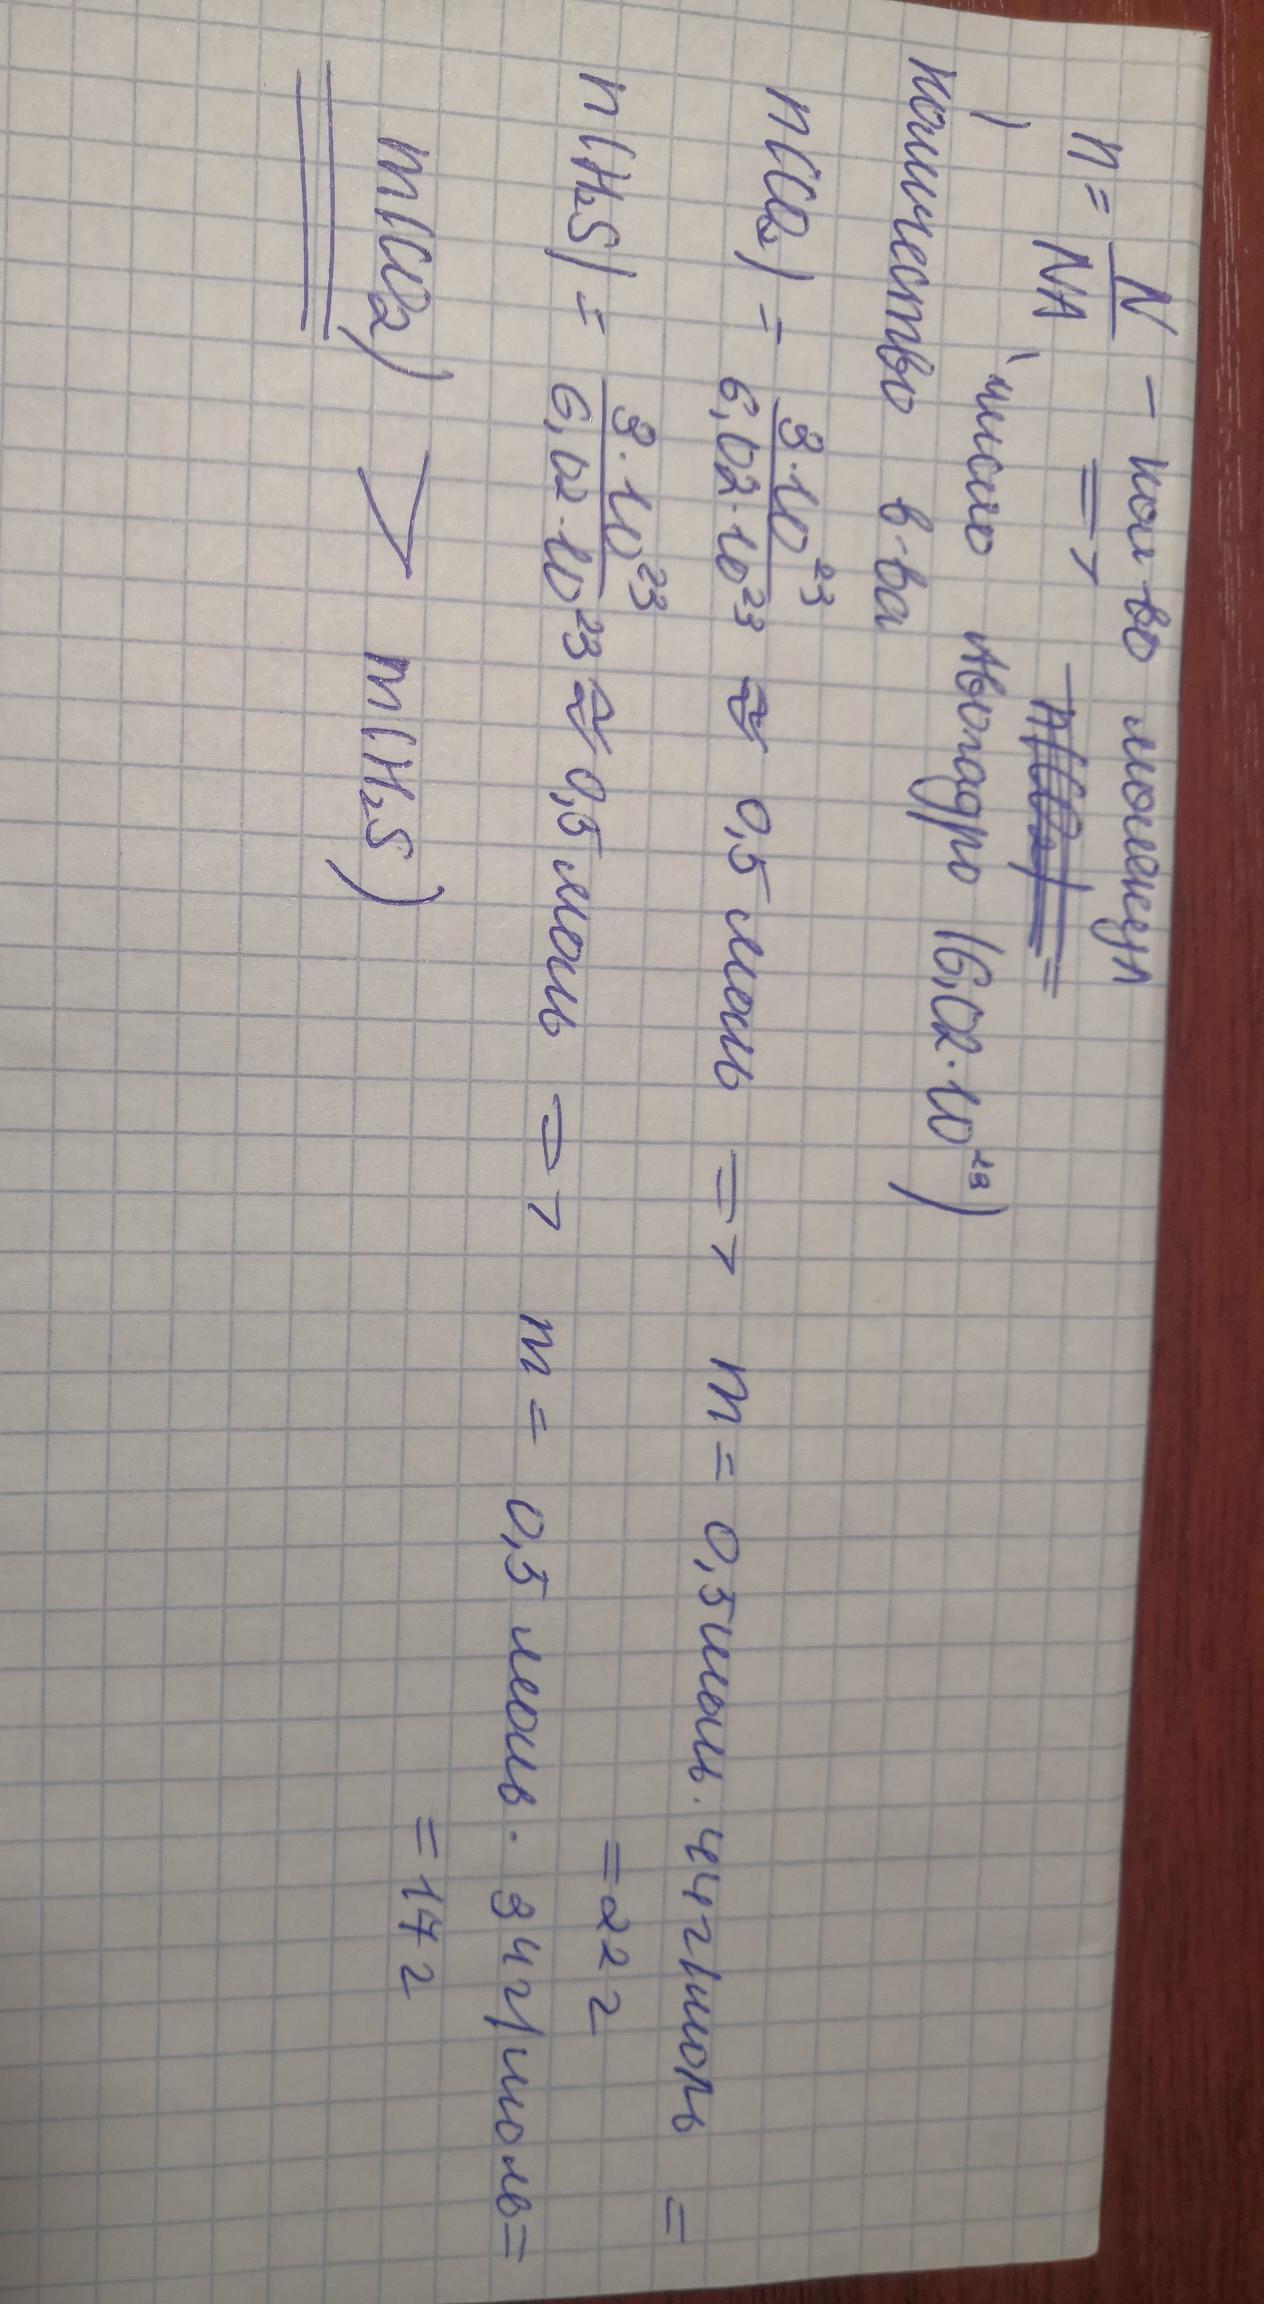 n = N/NA - кол-во молекул
=> n(CO2) =
число Авогадро (6,02·10²³)
количество в-ва
n(CO₂) = 3·10²³/6,02·10²³ ≈ 0,5 моль => m = 0,5 моль · 44 г/моль =
= 22 г
n(H₂S) = 3·10²³/6,02·10²³ ≈ 0,5 моль => m = 0,5 моль · 34 г/моль =
= 17 г
m(CO2) > m(H₂S)